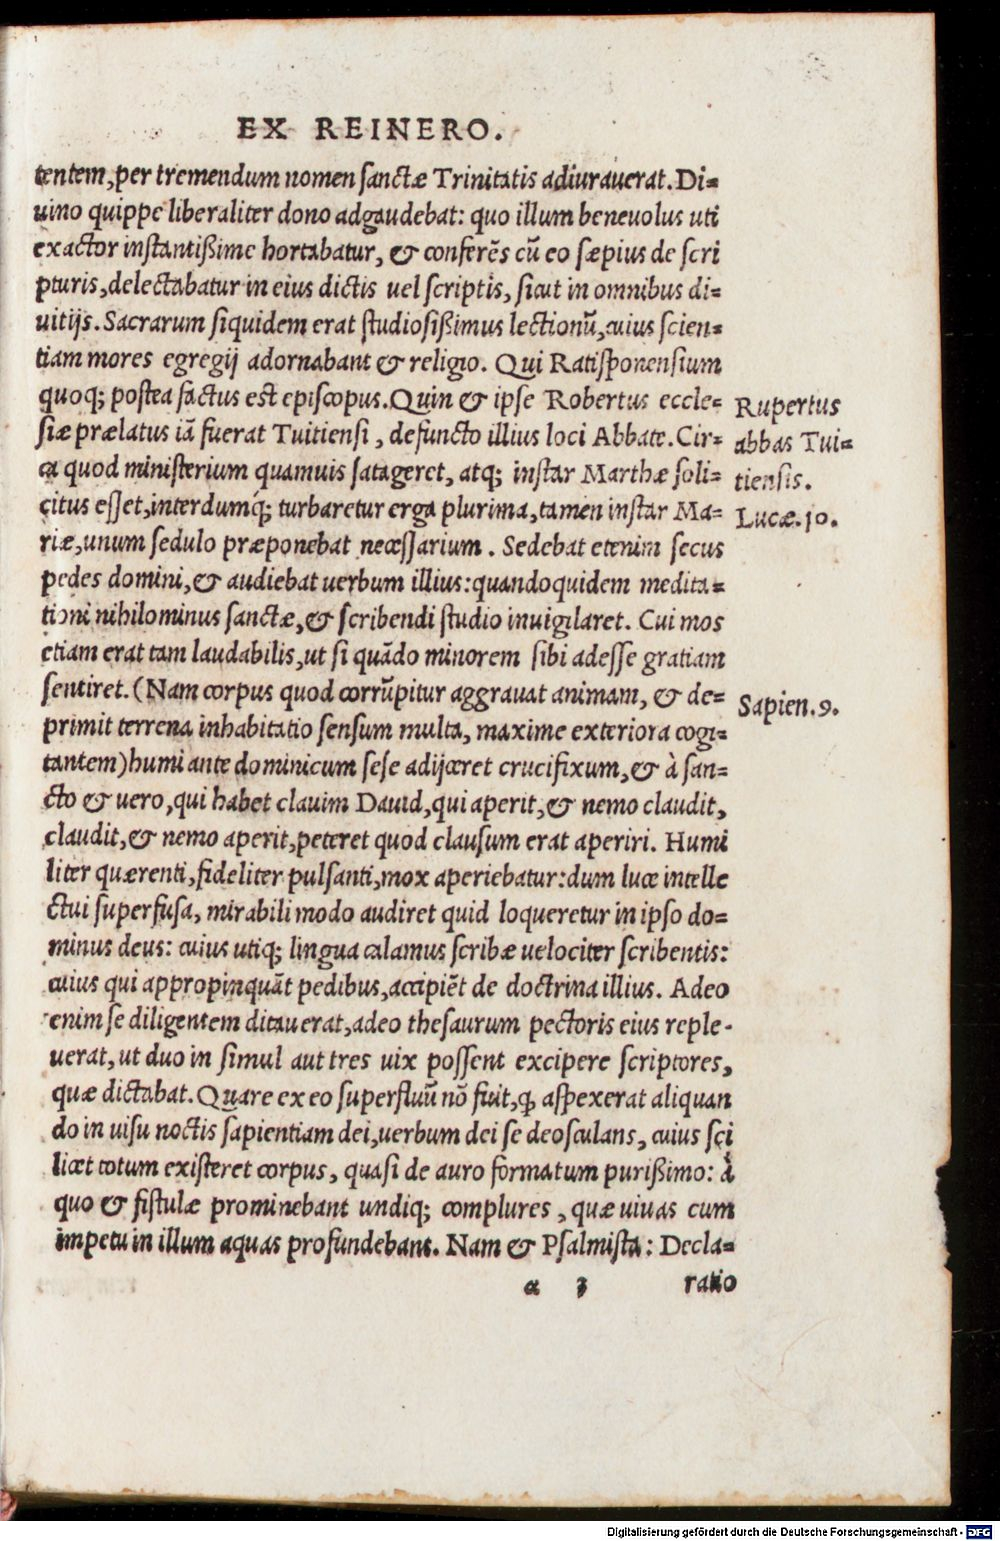 EX REINERO.
tentem, per tremendum nomen sanctæ Trinitatis adiurauerat. Di=
uino quippe liberaliter dono adgaudebat: quo illum beneuolus uti
exactor instantißime hortabatur, & conferēs cū eo sæpius de scri
pturis, delectabatur in eius dictis uel scriptis, sicut in omnibus di=
uitijs. Sacrarum siquidem erat studiosißimus lectionū, cuius scien=
tiam mores egregij adornabant & religio. Qui Ratisponensium
quoq; postea factus est episcopus. Quin & ipse Robertus eccle=
siæ prælatus iā fuerat Tuitiensi, defuncto illius loci Abbate. Cir=
ca quod ministerium quamuis satageret, atq; instar Marthæ soli=
citus esset, interdumq́; turbaretur erga plurima, tamen instar Ma=
riæ, unum sedulo præponebat necessarium. Sedebat etenim secus
pedes domini, & audiebat uerbum illius: quandoquidem medita=
tioni nihilominus sanctæ, & scribendi studio inuigilaret. Cui mos
etiam erat tam laudabilis, ut si quādo minorem sibi adesse gratiam
sentiret. (Nam corpus quod corrūpitur aggrauat animam, & de=
primit terrena inhabitatio sensum multa, maxime exteriora cogi=
tantem) humi ante dominicum sese adijceret crucifixum, & à san=
cto & uero, qui habet clauim Dauid, qui aperit, & nemo claudit,
claudit, & nemo aperit, peteret quod clausum erat aperiri. Humi
liter quærenti, fideliter pulsanti, mox aperiebatur: dum luce intelle
ctui superfusa, mirabili modo audiret quid loqueretur in ipso do=
minus deus: cuius utiq; lingua calamus scribæ uelociter scribentis:
cuius qui appropinquāt pedibus, accipiēt de doctrina illius. Adeo
enim se diligentem ditauerat, adeo thesaurum pectoris eius reple-
uerat, ut duo in simul aut tres uix possent excipere scriptores,
quæ dictabat. Quare ex eo superfluū nō fuit, ꝙ aspexerat aliquan
do in uisu noctis sapientiam dei, uerbum dei se deosculans, cuius sci
licet totum existeret corpus, quasi de auro formatum purißimo: à
quo & fistulæ prominebant undiq; complures, quæ uiuas cum
impetu in illum aquas profundebant. Nam & Psalmista: Decla=
a 3 ratio
Rupertus
abbas Tui=
tiensis.
Lucæ. 10.
Sapien. 9.
Digitalisierung gefördert durch die Deutsche Forschungsgemeinschaft - DFG